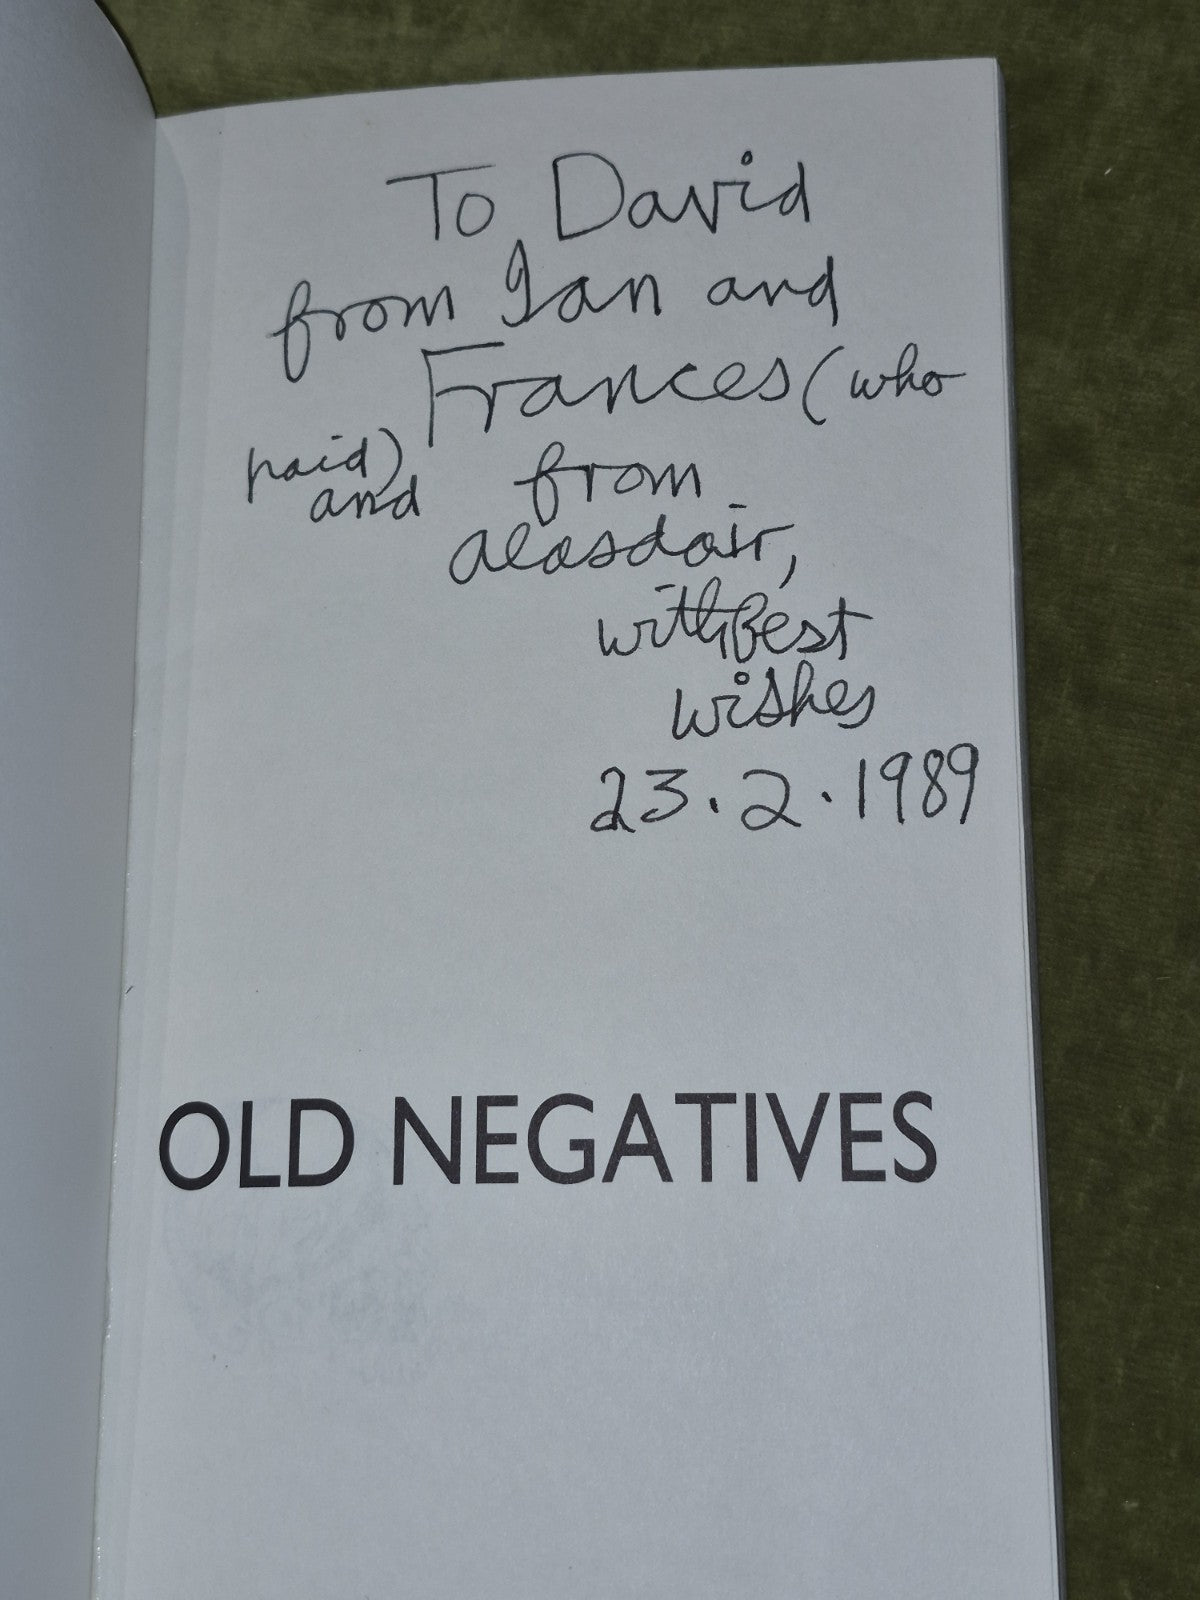 To David
from Ian and
Frances (who
paid) and from
Alasdair,
with best
wishes
23.2.1989
OLD NEGATIVES